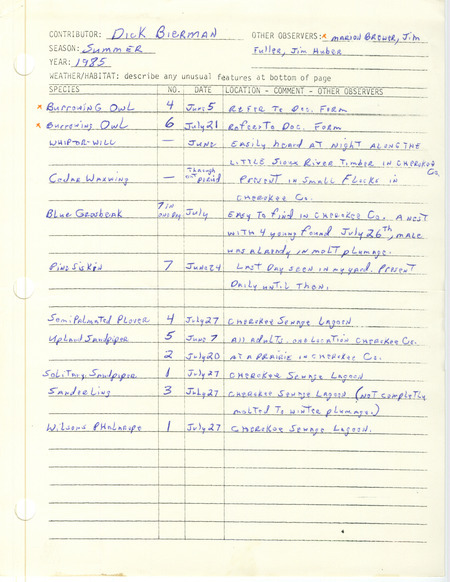 CONTRIBUTOR: Dick Bierman OTHER OBSERVERS: * Marion Brewer, Jim
SEASON: Summer Fuller, Jim Huber
YEAR: 1985
WEATHER/HABITAT: describe any unusual features at bottom of page
SPECIES NO. DATE LOCATION - COMMENT - OTHER OBSERVERS
* Burrowing Owl 4 June 5 Refer To Doc. Form
* Burrowing Owl 6 July 21 Refer To Doc. Form
Whip-or-will — June Easily heard at night along the
Little Sioux River Timber in Cherokee Co.
Cedar Waxwing — Through out period Present in small flocks in
Cherokee Co.
Blue Grosbeak 7 in one day July Easy to find in Cherokee Co. A nest
with 4 young found July 26th, male
was already in molt plumage.
Pine Siskin 7 June 24 Last Day seen in my yard. Present
Daily until then.
Semipalmated Plover 4 July 27 Cherokee Sewage Lagoon
Upland Sandpiper 5 June 7 All adults. one location Cherokee Co.
2 July 20 At a prairie in Cherokee Co.
Solitary Sandpiper 1 July 27 Cherokee Sewage Lagoon
Sanderling 3 July 27 Cherokee Sewage Lagoon (not completly
molted to winter plumage.)
Wilsons Phalarope 1 July 27 Cherokee Sewage Lagoon.